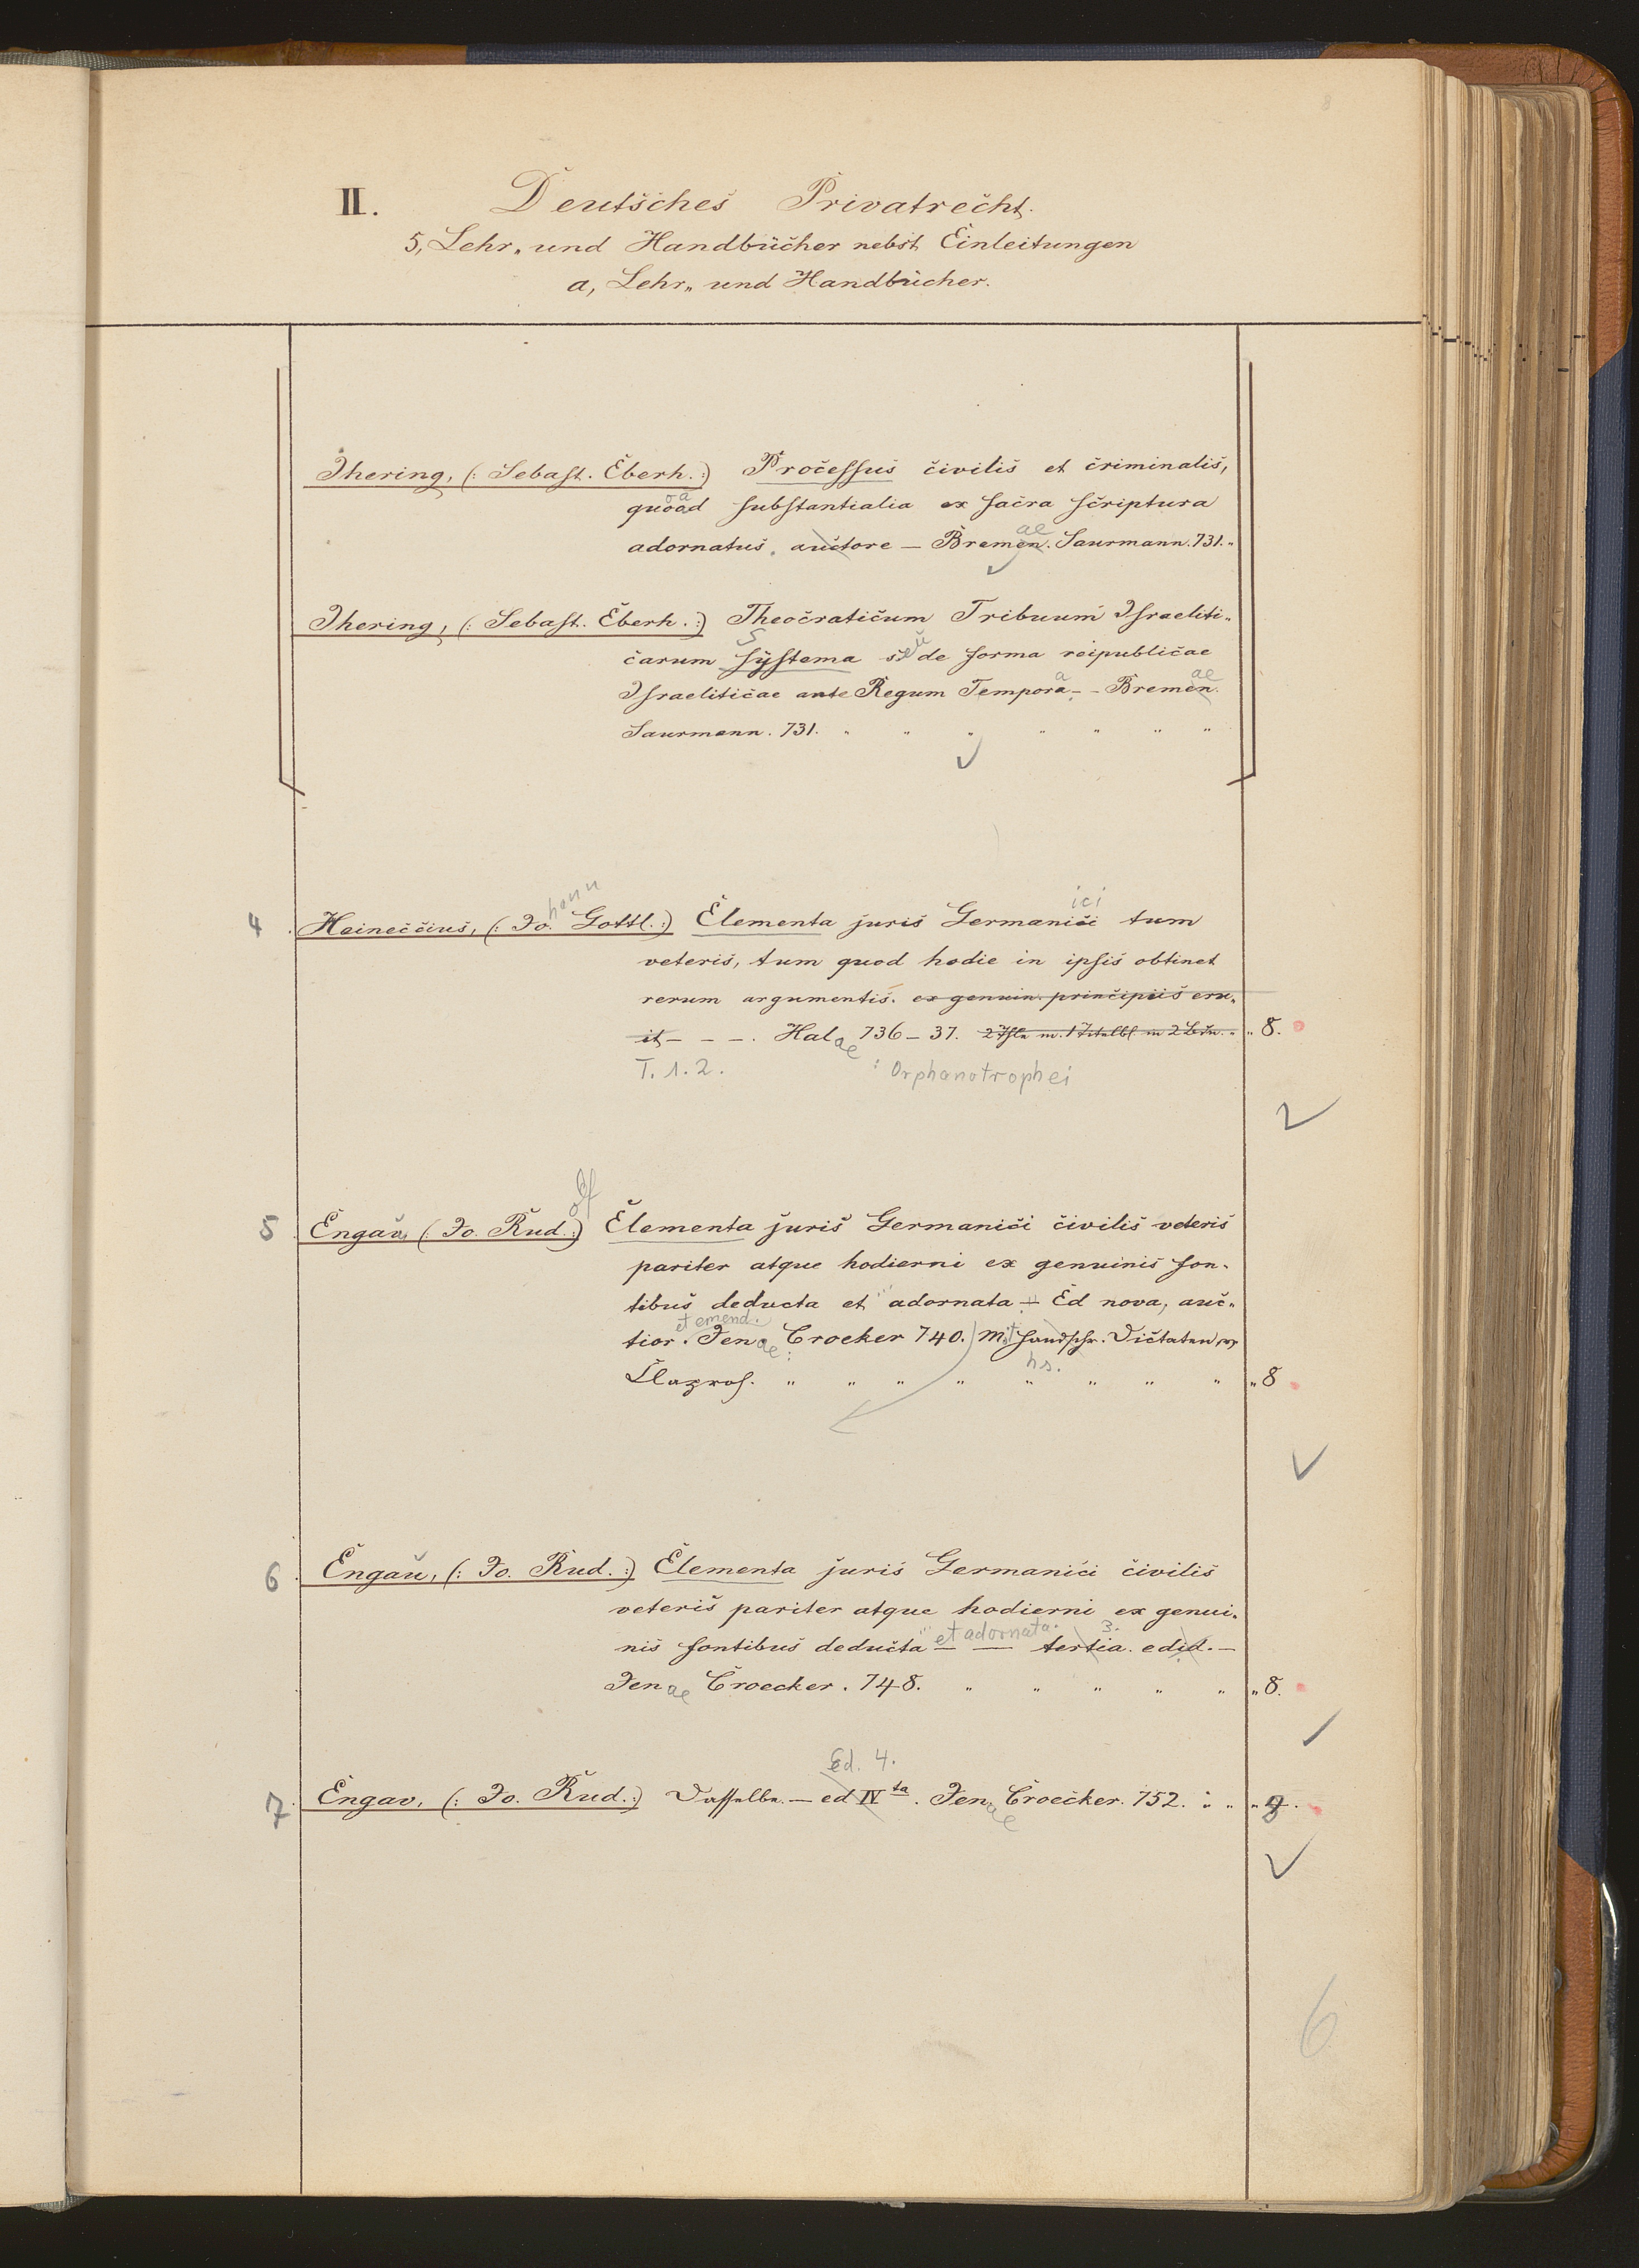 8
II. Deutsches Privatrecht.
5, Lehr„ und Handbücher nebst Einleitungen
a, Lehr„ und Handbücher.
Ihering, (: Sebast. Eberh. :) Processus civilis et criminalis,
quoad substantialia ex sacra scriptura
adornatus. auctore — Bremen. Saurmann. 731. „
ae
Ihering, (: Sebast. Eberh. :) Theocraticum Tribuum Israeliti„
carum systema s. de forma reipublicae
Israeliticae ante Regum Tempora - - Bremen.
ae
Saurmann. 731. „ „ „ „ „ „ „
hann
ici
4 Heineccius, (: Jo. Gottl. :) Elementa juris Germanici tum
veteris, tum quod hodie in ipsis obtinet
rerum argumentis. ex genuin. principiis eru„
it - - -. Halae 736–37. 2 Thle m. 1 Titelbl. m 2 Bdn. „ „ 8.
T. 1. 2. : Orphanotrophei
olf
5 Engau, (: Jo. Rud. :) Elementa juris Germanici civilis veteris
pariter atque hodierni ex genuinis fon„
tibus deducta et adornata — Ed nova, auc„
et emend.
tior. Jenae: Croeker 740. Mit handschr. Dictaten von
hs.
Claproth. „ „ „ „ „ „ „ „ „ 8
6 Engau, (: Jo. Rud. :) Elementa juris Germanici civilis
veteris pariter atque hodierni ex genui„
et adornata. 3.
nis fontibus deducta — — tertia. edid. —
Jenae Croecker. 748. „ „ „ „ „ „ 8.
Ed. 4.
7 Engau, (: Jo. Rud. :) Dasselbe. — ed IV ta. Jenae Croecker. 752. „ „ „ 8.
6